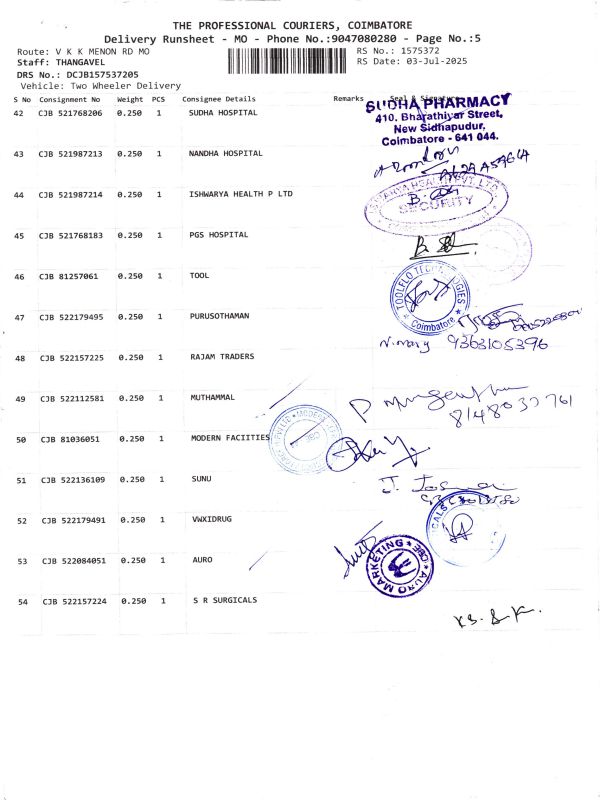 THE PROFESSIONAL COURIERS, COIMBATORE
Delivery Runsheet - MO - Phone No.:9047080280 - Page No.:5
Route: V K K MENON RD MO RS No.: 1575372
Staff: THANGAVEL RS Date: 03-Jul-2025
DRS No.: DCJB157537205
Vehicle: Two Wheeler Delivery
S No Consignment No Weight PCS Consignee Details Remarks Seal & Signature
42 CJB 521768206 0.250 1 SUDHA HOSPITAL
SUDHA PHARMACY
410. Bharathiyar Street,
New Sidhapudur,
Coimbatore - 641 044.
43 CJB 521987213 0.250 1 NANDHA HOSPITAL
44 CJB 521987214 0.250 1 ISHWARYA HEALTH P LTD
SECURITY
45 CJB 521768183 0.250 1 PGS HOSPITAL
46 CJB 81257061 0.250 1 TOOL
TOOLFLO TECHNOLOGIES
Coimbatore
47 CJB 522179495 0.250 1 PURUSOTHAMAN
9363105396
48 CJB 522157225 0.250 1 RAJAM TRADERS
49 CJB 522112581 0.250 1 MUTHAMMAL
50 CJB 81036051 0.250 1 MODERN FACIITIES
51 CJB 522136109 0.250 1 SUNU
52 CJB 522179491 0.250 1 VWXIDRUG
53 CJB 522084051 0.250 1 AURO
AURO MARKETING CBE
54 CJB 522157224 0.250 1 S R SURGICALS